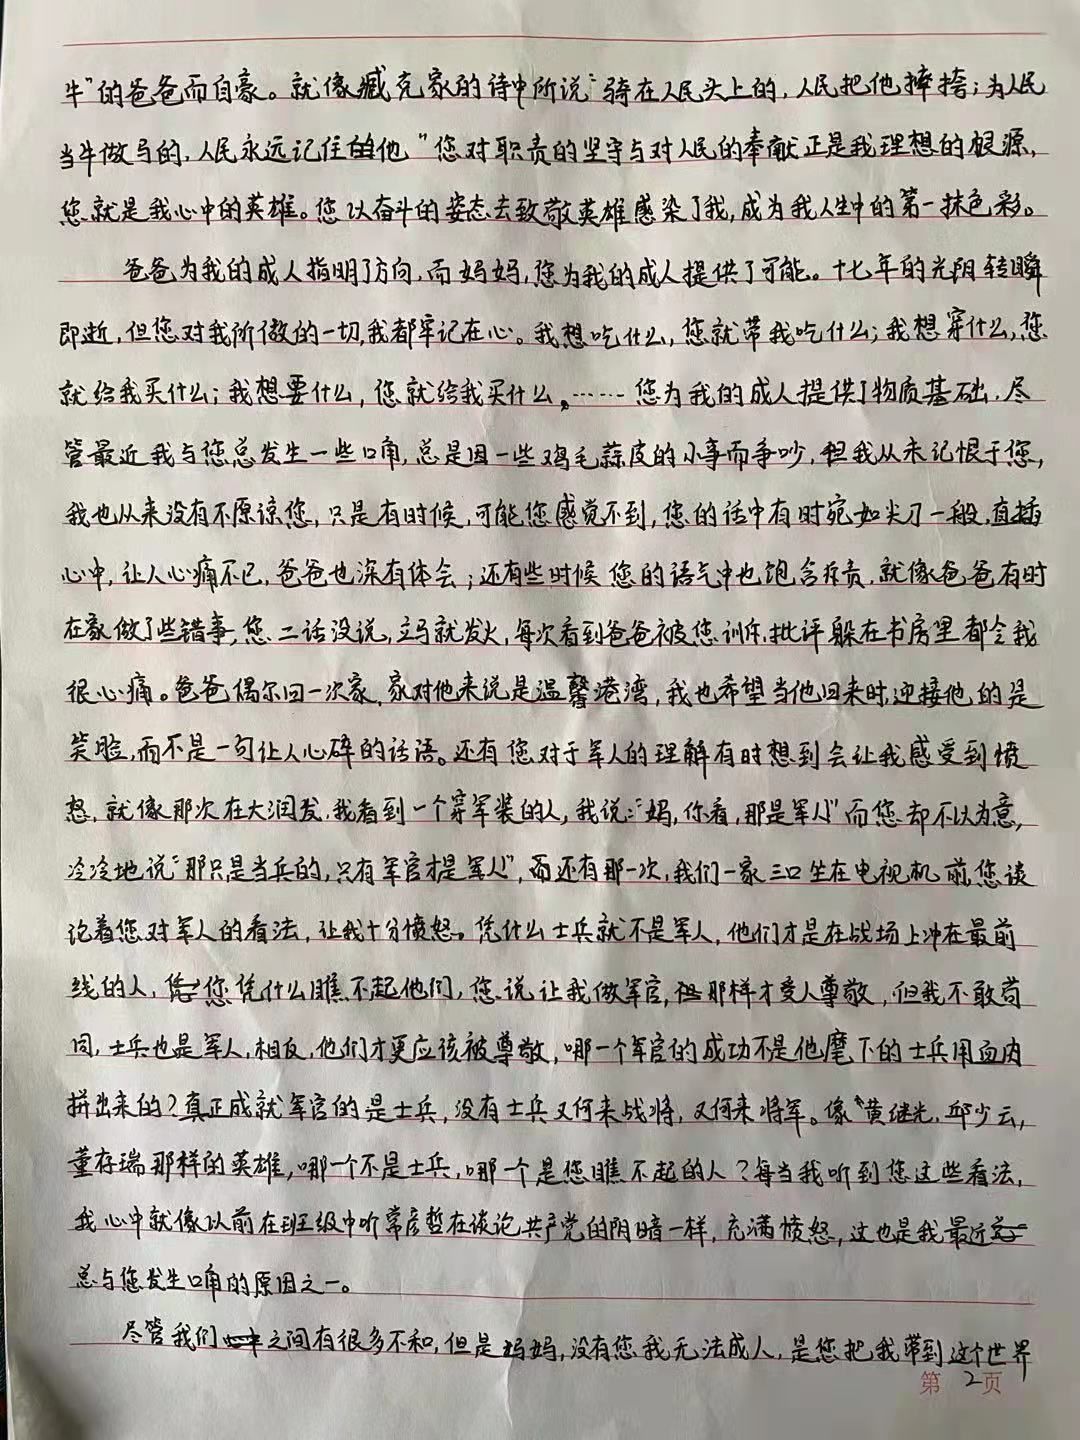 牛”的爸爸而自豪。就像臧克家的诗中所说“骑在人民头上的，人民把他摔挎；为人民
当牛做马的，人民永远记住他”您对职责的坚守与对人民的奉献正是我理想的根源，
您就是我心中的英雄。您以奋斗的姿态去致敬英雄感染了我，成为我人生中的第一抹色彩。
爸爸为我的成人指明了方向，而妈妈，您为我的成人提供了可能。十七年的光阴转瞬
即逝，但您对我所做的一切，我都牢记在心。我想吃什么，您就带我吃什么；我想穿什么，您
就给我买什么；我想要什么，您就给我买什么。……您为我的成人提供了物质基础，尽
管最近我与您总发生一些口角，总是因一些鸡毛蒜皮的小事而争吵，但我从未记恨于您，
我也从来没有不原谅您，只是有时候，可能您感觉不到，您的话中有时宛如尖刀一般，直插
心中，让人心痛不已，爸爸也深有体会；还有些时候您的语气中也饱含斥责，就像爸爸有时
在家做了些错事，您二话没说，立马就发火，每次看到爸爸被您训斥，批评躲在书房里都令我
很心痛。爸爸偶尔回一次家，家对他来说是温馨港湾，我也希望当他回来时，迎接他，的是
笑脸，而不是一句让人心碎的话语。还有您对于军人的理解有时想到会让我感受到愤
怒，就像那次在大润发，我看到一个穿军装的人，我说：“妈，你看，那是军人”而您却不以为意，
冷冷地说“那只是当兵的，只有军官才是军人”，而还有那一次，我们一家三口坐在电视机前，您谈
论着您对军人的看法，让我十分愤怒。凭什么士兵就不是军人，他们才是在战场上冲在最前
线的人，您凭什么瞧不起他们，您说让我做军官，那样才受人尊敬，但我不敢苟
同，士兵也是军人，相反，他们才更应该被尊敬，哪一个军官的成功不是他麾下的士兵用血肉
拼出来的？真正成就军官的是士兵，没有士兵又何来战将，又何来将军。像“黄继光，邱少云，
董存瑞那样的英雄，哪一个不是士兵，哪一个是您瞧不起的人？每当我听到您这些看法，
我心中就像以前在班级中听常彦哲在谈论共产党的阴暗一样，充满愤怒，这也是我最近
总与您发生口角的原因之一。
尽管我们之间有很多不和，但是妈妈，没有您我无法成人，是您把我带到这个世界
第 2 页